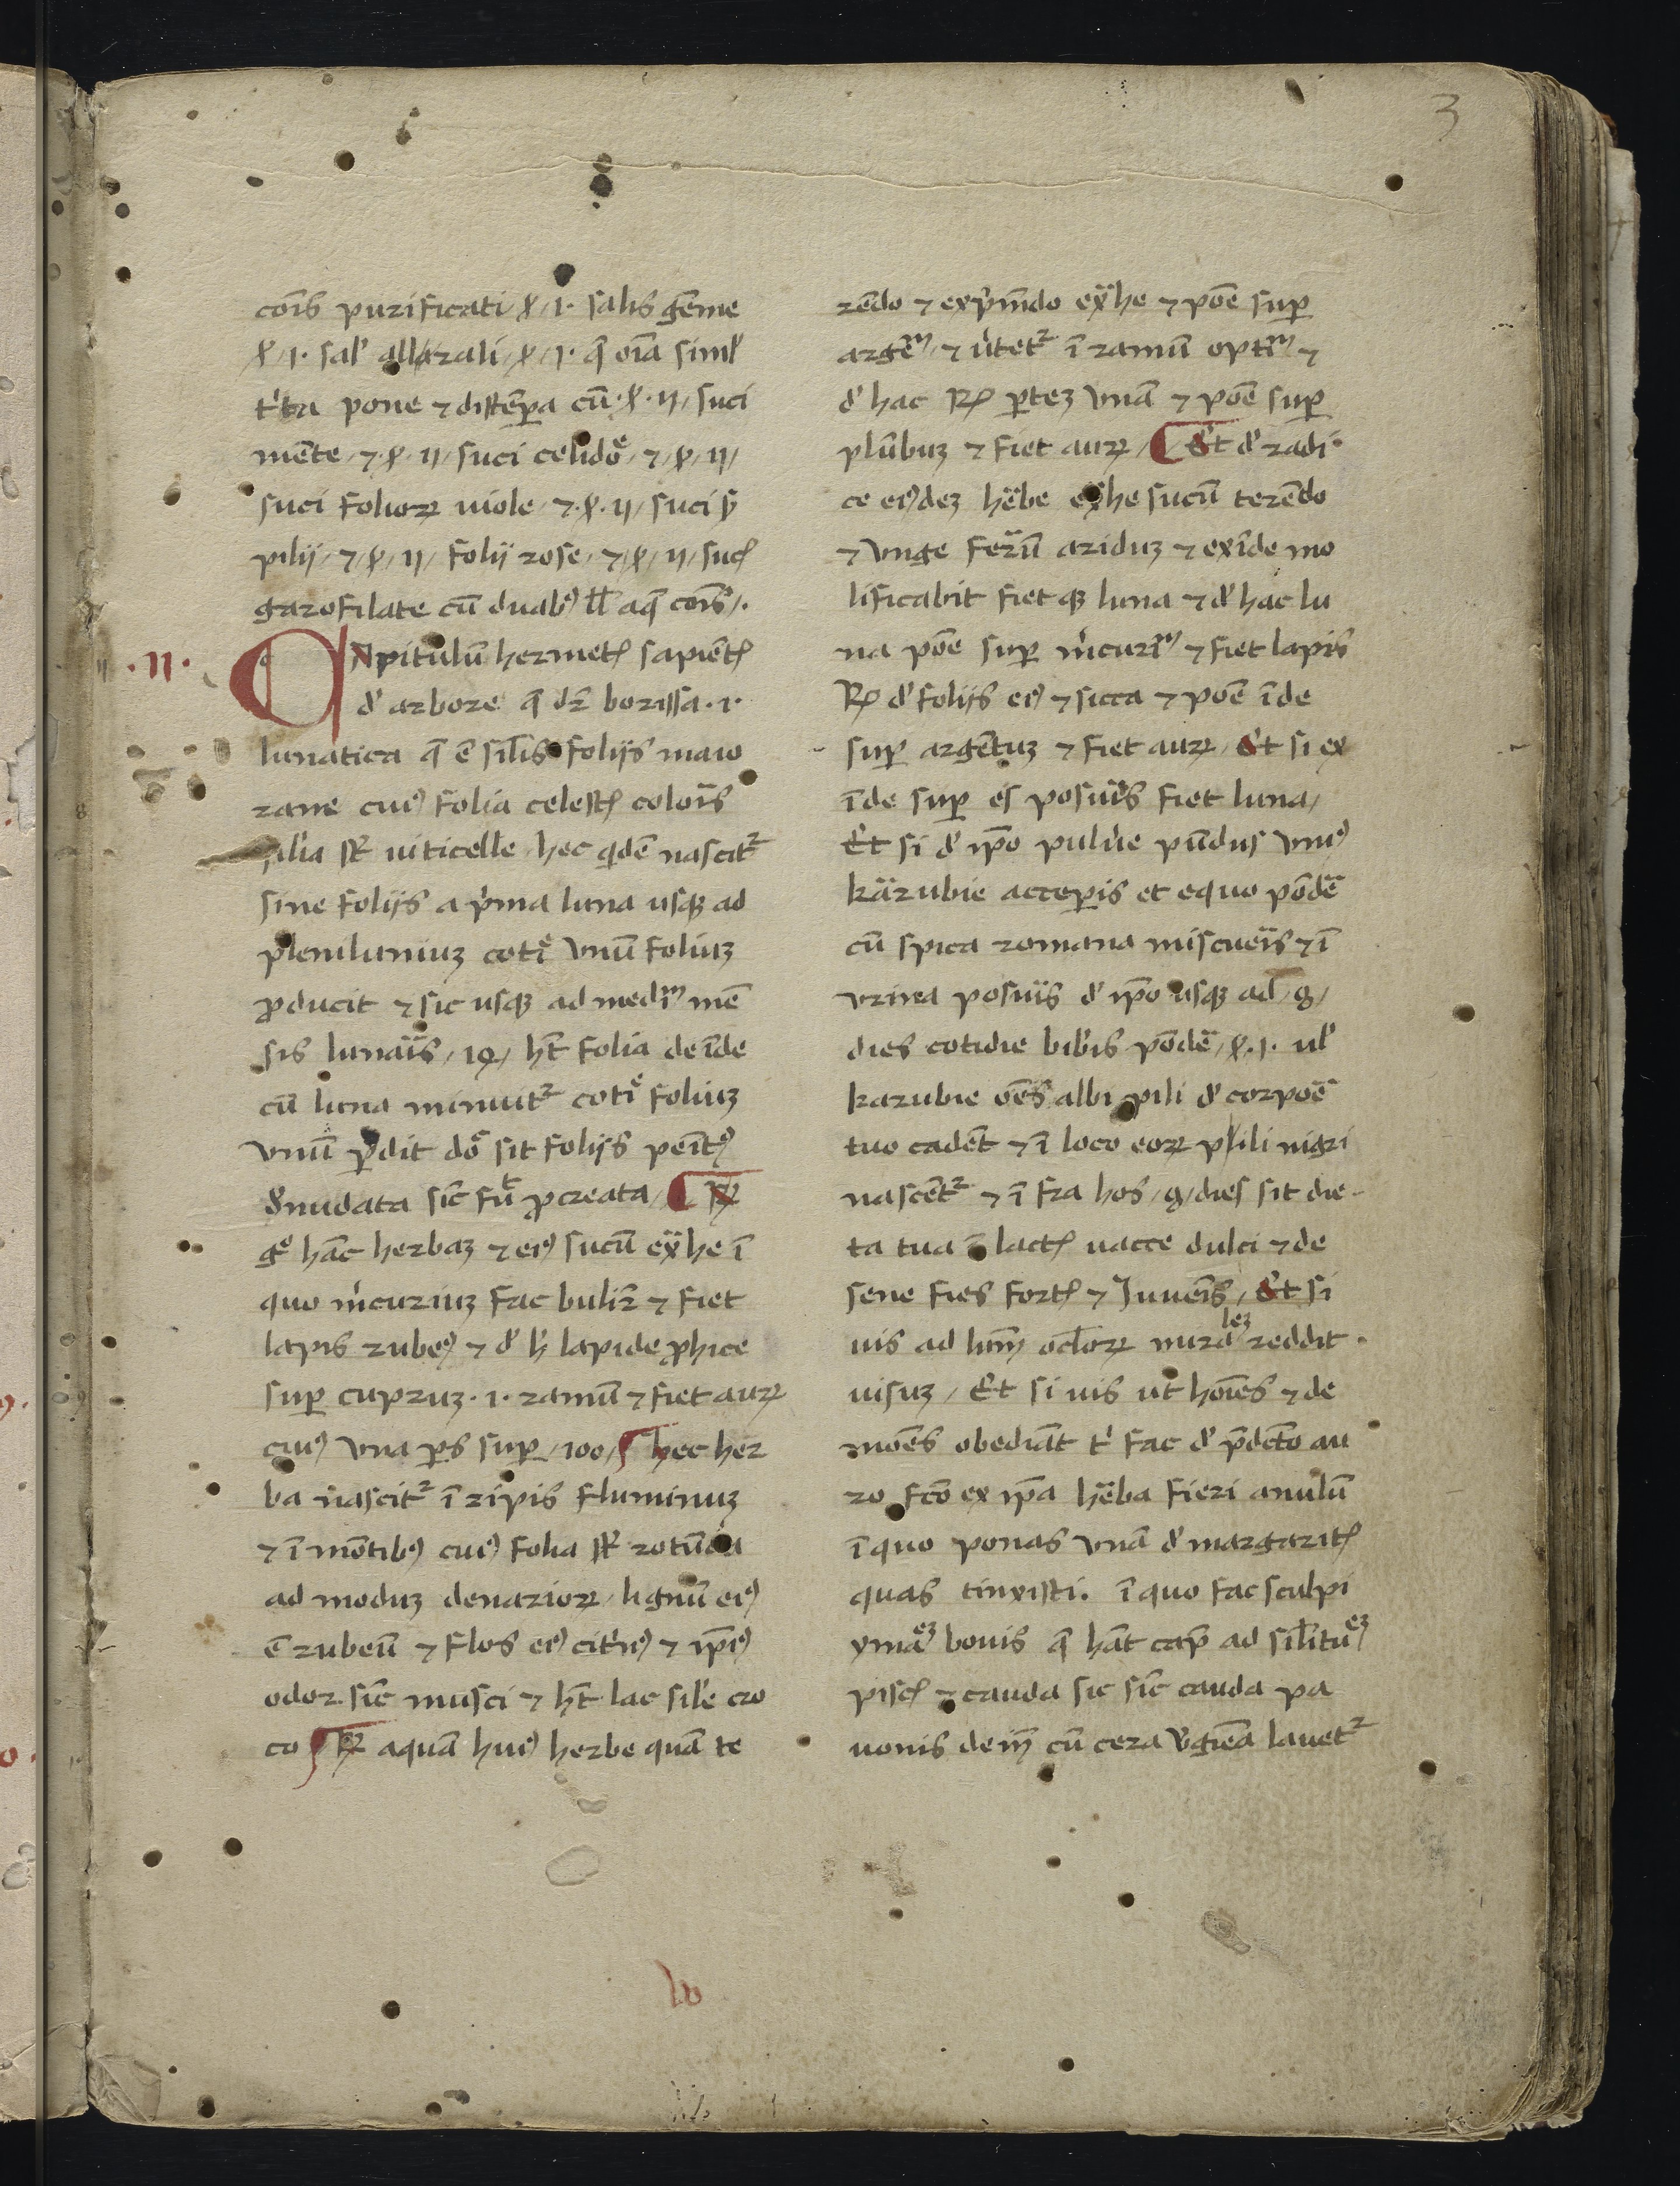 3
cois purificati ꝓ /1· salis gēme
/1· sal' allkali /1· q̄ oīa simĺ
t'ta pone ⁊ distēpa cū · 11 / suci
mēte / ⁊ · 11 / suci celidoē / ⁊ / 11 /
suci folioꝝ uiole / ⁊ · 11 / suci s'
pilij / ⁊ / 11 / folij rose / ⁊ / 11 / sucꝭ
garofilate cū duabꝰ ll' aq̄ cois /·
·11· Capitulū hermetꝭ sapiētꝭ
d' arbore q̄ dr̄ borissa · i ·
lunatica q̄ ē sil'is folijs maio
rane cuiꝰ folia celestꝭ coloīs
silia sūt uiticelle / hec qdē nascitᷣ
sine folijs a p'ma luna usqꝫ ad
pleniluniuꝫ coti͛ vnū foliuꝫ
ꝓducit ⁊ sic usqꝫ ad mediᷠ mē
sis lunaīs / 14 / hꝫt folia de īde
cū luna minuitᷣ coti͛ foliuꝫ
vnū ꝑdit do͛ sit folijs peītꝰ
d'nudata sic̄ fuͭ ꝓcreata / ¶ ℞
g° hāc herbaꝫ ⁊ eiꝰ sucū ex̄he ī
quo m'curiuꝫ fac bulir̄ ⁊ fiet
lapis rubeꝰ ⁊ d' h' lapide ꝓhice
suꝑ cupruꝫ · i · ramū ⁊ fiet auꝝ
cuiꝰ vna ꝑs suꝑ / 100 / hec her
ba nascitᷣ ī ripis fluminuꝫ
⁊ ī mōtibꝰ cuiꝰ folia sūt rotūda
ad moduꝫ denarioꝝ / lignū eiꝰ
ē rubeū ⁊ flos eiꝰ cit'nꝰ ⁊ ip̄iꝰ
odor sic̄ musci ⁊ hꝫt lac sil'e cro
co ℞ aquā huiꝰ herbe quā te
rēdo ⁊ exp'mēdo ex̄he ⁊ poē suꝑ
argēᷠ / ⁊ u'tetᷣ ī ramū optīᷠ ⁊
d' hac ℞ ꝑteꝫ vnā ⁊ poē suꝑ
plūbuꝫ ⁊ fiet auꝝ / ¶ Et d' radi·
ce eiꝰdeꝫ hēbe ex̄he sucū terēdo
⁊ vnge ferrū ariduꝫ ⁊ exīde mo
lificabit fietqꝫ luna ⁊ d' hac lu
na poē suꝑ m'curiᷠ ⁊ fiet lapis
℞ d' folijs eiꝰ ⁊ sicca ⁊ poē īde
suꝑ argētuꝫ ⁊ fiet auꝝ / Et si ex
īde suꝑ es posu'is fiet luna /
Et si d' ip̄o pulu'e pūdus vniꝰ
karrubie acceꝑis et equo pōdē
cū spica romana miscueīs ⁊ ī
vrina posuis d' ip̄o usqꝫ ad / 9 /
dies cotidie bib'is pōdē / · 1 · ul'
karubie oēs albi pili d' corpoē
tuo cadēt ⁊ ī loco eoꝝ pili nigri
nascētᷣ ⁊ ī fra hos / 9 / dies sit die-
ta tua ī lactꝭ uacce dulci ⁊ de
sene fies fortꝭ ⁊ Juueīs / Et si
uis ad lumꝭ oc'loꝝ miraleꝫ reddit·
uisuꝫ / Et si uis ut hoīes ⁊ de
moēs obediāt t' fac d' p̄dcto au
ro fc̄o ex ip̄a hēba fieri anulū
ī quo ponas vnā d' margaritꝭ
quas tinxisti. ī quo fac sculpi
ymaēꝫ bouis q̄ hāt cap̄ ad sil'ituēꝫ
piscꝭ ⁊ cauda sic sic̄ cauda pa
uonis deīᷠ cū cera v'gīea lauetᷣ